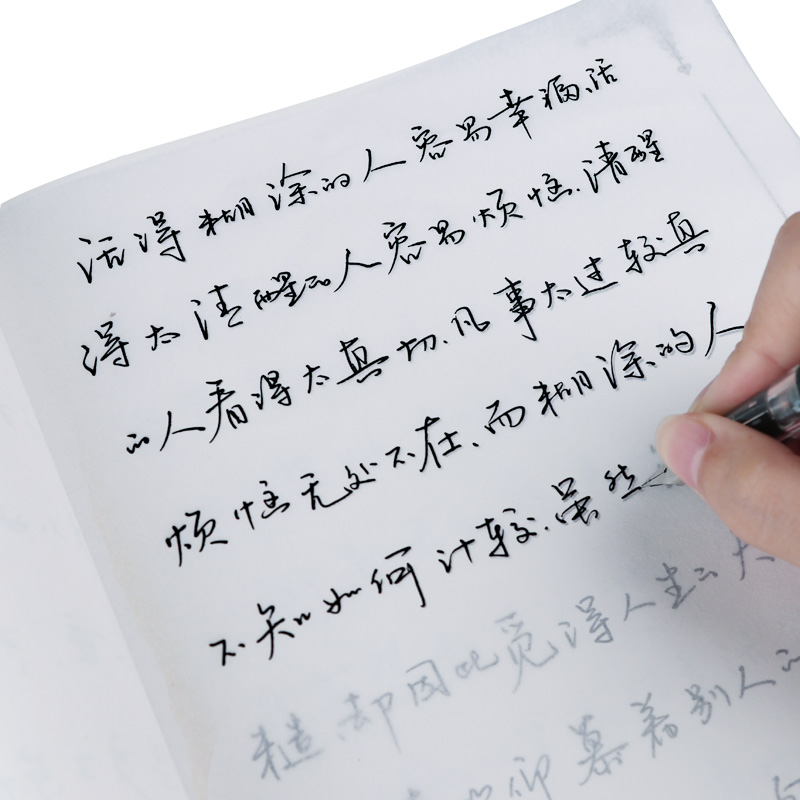 活得糊涂的人容易幸福、活
得太清醒的人容易烦恼.清醒
的人看得太真切.凡事太过较真
烦恼无处不在、而糊涂的人
不知如何计较.虽然
糙却因此觅得人生的大
仰慕着别人的